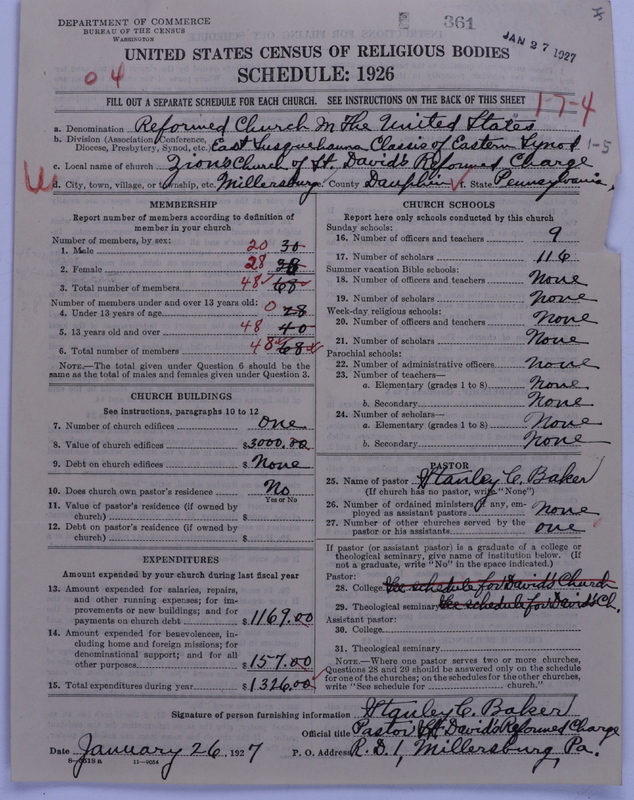 DEPARTMENT OF COMMERCE
BUREAU OF THE CENSUS
WASHINGTON
361
JAN 27 1927
UNITED STATES CENSUS OF RELIGIOUS BODIES
SCHEDULE: 1926
04
FILL OUT A SEPARATE SCHEDULE FOR EACH CHURCH. SEE INSTRUCTIONS ON THE BACK OF THIS SHEET
17-4
a. Denomination Reformed Church In The United States
b. Division (Association, Conference, Diocese, Presbytery, Synod, etc.) East Susquehanna Classis of Eastern Synod 1-5
c. Local name of church Zions Church of St. David's Reformed Charge
d. City, town, village, or township, etc. Millersburg e. County Dauphin f. State Pennsylvania
MEMBERSHIP
Report number of members according to definition of member in your church
Number of members, by sex:
1. Male 20 30
2. Female 28 38
3. Total number of members 48 68
Number of members under and over 13 years old:
4. Under 13 years of age 0 28
5. 13 years old and over 48 40
6. Total number of members 48 68
NOTE.—The total given under Question 6 should be the same as the total of males and females given under Question 3.
CHURCH BUILDINGS
See instructions, paragraphs 10 to 12
7. Number of church edifices One
8. Value of church edifices $3000.00
9. Debt on church edifices $None
10. Does church own pastor's residence No
Yes or No
11. Value of pastor's residence (if owned by church) $
12. Debt on pastor's residence (if owned by church) $
EXPENDITURES
Amount expended by your church during last fiscal year
13. Amount expended for salaries, repairs, and other running expenses; for improvements or new buildings; and for payments on church debt $1169.00
14. Amount expended for benevolences, including home and foreign missions; for denominational support; and for all other purposes $157.00
15. Total expenditures during year $1326.00
CHURCH SCHOOLS
Report here only schools conducted by this church
Sunday schools:
16. Number of officers and teachers 9
17. Number of scholars 116
Summer vacation Bible schools:
18. Number of officers and teachers None
19. Number of scholars None
Week-day religious schools:
20. Number of officers and teachers None
21. Number of scholars None
Parochial schools:
22. Number of administrative officers None
23. Number of teachers—
a. Elementary (grades 1 to 8) None
b. Secondary None
24. Number of scholars—
a. Elementary (grades 1 to 8) None
b. Secondary None
PASTOR
25. Name of pastor Stanley C. Baker
(If church has no pastor, write "None")
26. Number of ordained ministers, if any, employed as assistant pastors None
27. Number of other churches served by the pastor or his assistants one
If pastor (or assistant pastor) is a graduate of a college or theological seminary, give name of institution below. (If not a graduate, write "No" in the space indicated.)
Pastor:
28. College See schedule for David's Church
29. Theological seminary See schedule for David's Ch.
Assistant pastor:
30. College
31. Theological seminary
NOTE.—Where one pastor serves two or more churches, Questions 28 and 29 should be answered only on the schedule for one of the churches; on the schedules for the other churches, write "See schedule for church."
Signature of person furnishing information Stanley C. Baker
Official title Pastor St. David's Reformed Charge
Date January 26, 1927 P. O. Address R.D.1, Millersburg, Pa.
11-9054